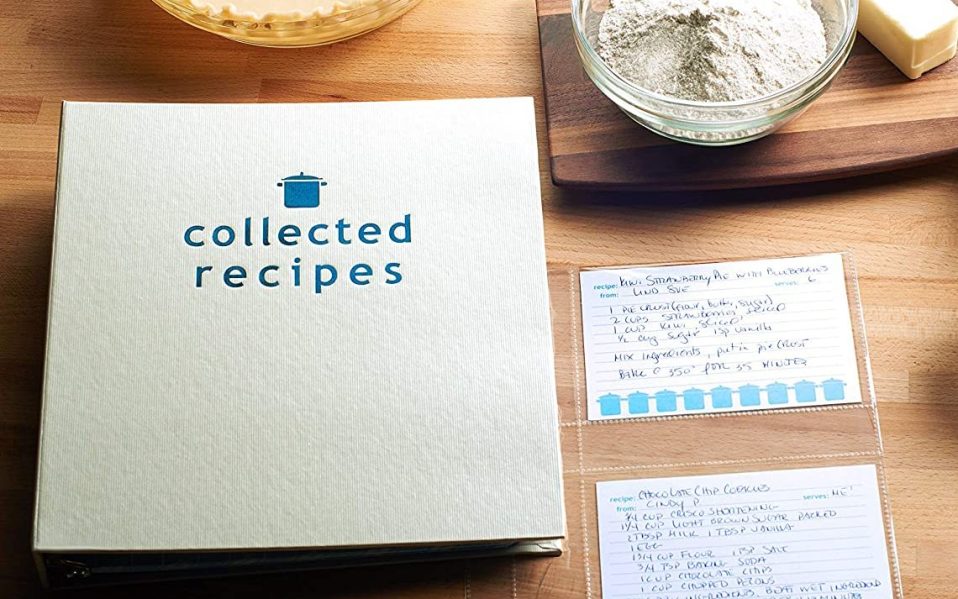 collected
recipes
recipe: KIWI STRAWBERRY PIE WITH BLUEBERRIES
from: LIND SUE serves: 6
1 PIE CRUST (flour, butter, sugar)
2 CUPS STRAWBERRIES, SLICED
1 CUP KIWI, SLICED
1/2 cup sugar 1 tsp vanilla
MIX ingredients, put in pie CRUST
BAKE @ 350° FOR 35 MINUTES
recipe: CHOCOLATE CHIP COOKIES
from: CINDY P serves: ME!
3/4 CUP CRISCO SHORTENING
1 1/4 CUP LIGHT BROWN SUGAR PACKED
2 TBSP MILK 1 TBSP VANILLA
1 EGG
1 3/4 CUP FLOUR 1 TSP SALT
3/4 TSP BAKING SODA
1 CUP CHOCOLATE CHIPS
1 CUP CHOPPED PECANS
INGREDIENTS, BEAT WET INGREDIENTS